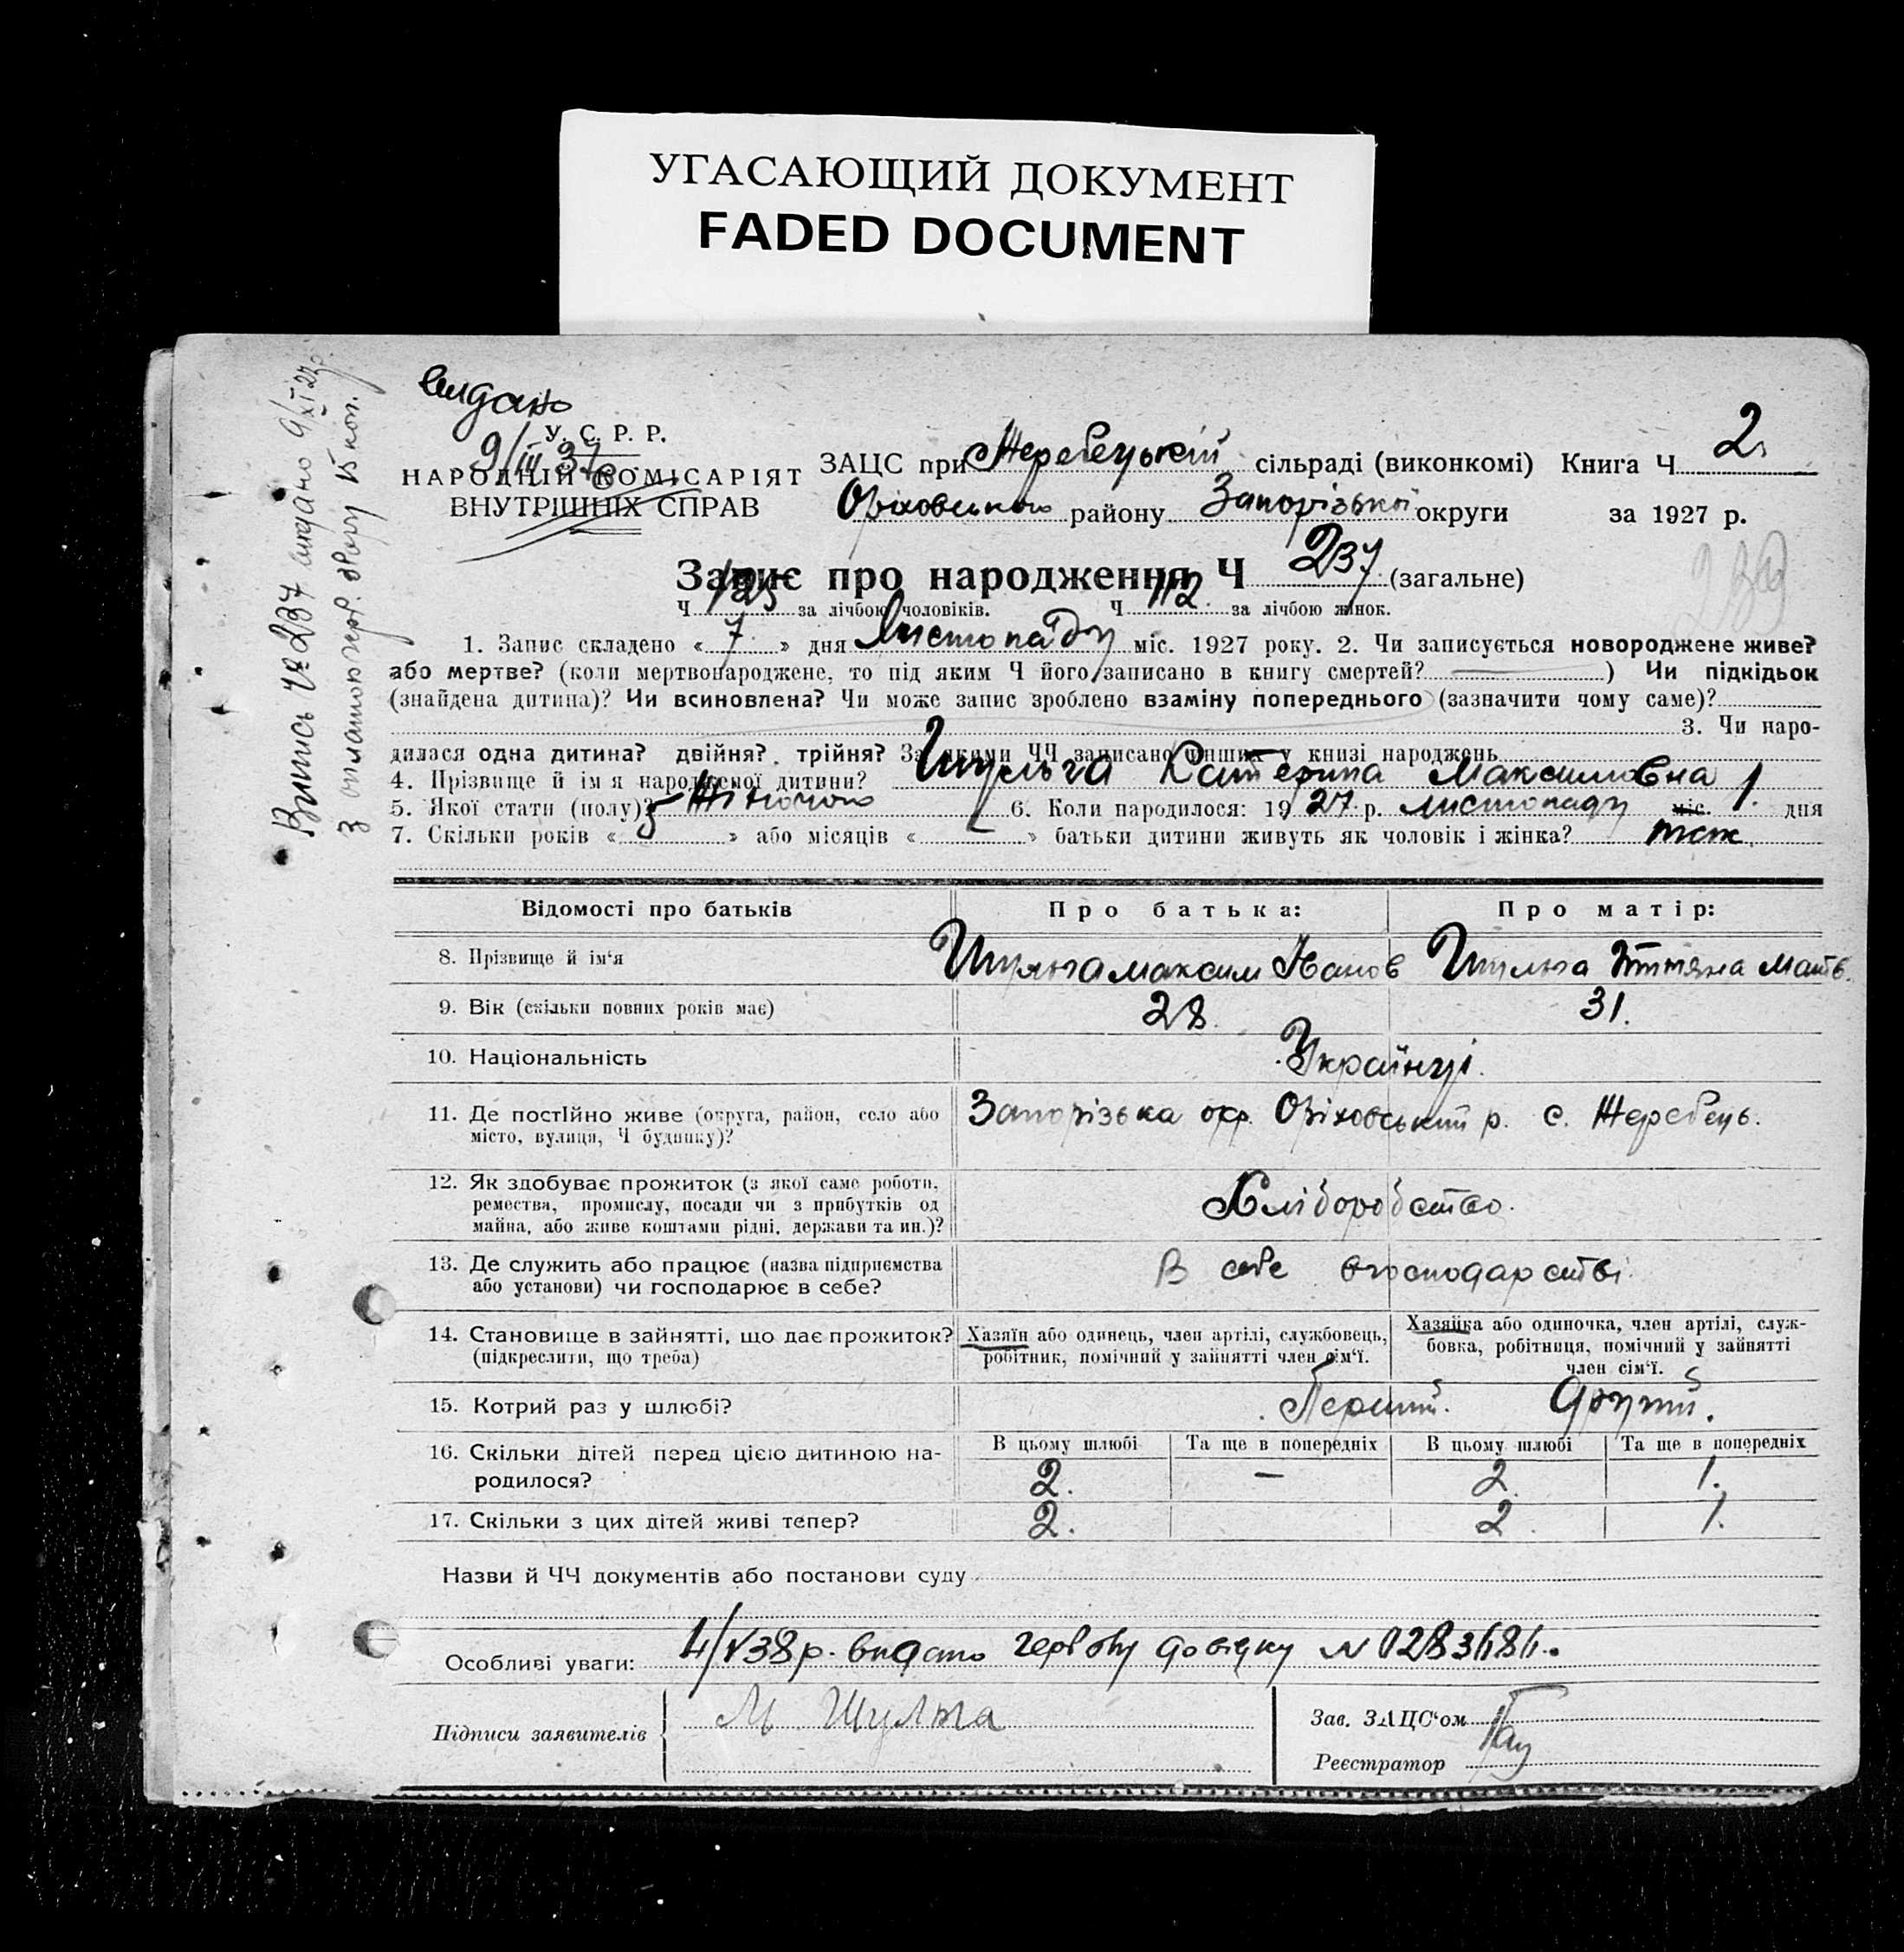 УГАСАЮЩИЙ ДОКУМЕНТ
FADED DOCUMENT
видано
9/III 37
У. С. Р. Р.
НАРОДНІЙ КОМІСАРІЯТ
ВНУТРІШНІХ СПРАВ
ЗАЦС при Жеребецькій сільраді (виконкомі) Книга Ч 2
Оріховського району Запорізької округи за 1927 р.
Запис про народження Ч 237 (загальне)
239
Ч 125 за лічбою чоловіків. Ч 112. за лічбою жінок.
1. Запис складено « 7 » дня Листопаду міс. 1927 року. 2. Чи записується новороджене живе?
або мертве? (коли мертвонароджене, то під яким Ч його записано в книгу смертей? ) Чи підкідьок
(знайдена дитина)? Чи всиновлена? Чи може запис зроблено взаміну попереднього (зазначити чому саме)?
3. Чи наро-
дилася одна дитина? двійня? трійня? За якими ЧЧ записано инших у книзі народжень
4. Прізвище й ім'я народженої дитини? Шульга Катерина Максимовна
5. Якої стати (полу)? Жіночою 6. Коли народилося: 1927 р. листопаду міс. 1. дня
7. Скільки років « 5 » або місяців « — » батьки дитини живуть як чоловік і жінка? так
Відомості про батьків Про батька: Про матір:
8. Прізвище й ім'я Шульга Максим Іванов Шульга Тетяна Матв.
9. Вік (скільки повних років має) 28. 31.
10. Національність Українці.
11. Де постІйно живе (округа, район, село або Запорізька окр. Оріховський р. с. Жеребець.
місто, вулиця, Ч будинку)?
12. Як здобуває прожиток (з якої саме роботи,
ремества, промислу, посади чи з прибутків од Хліборобство.
майна, або живе коштами рідні, держави та ин.)?
13. Де служить або працює (назва підприємства В себе в господарстві.
або установи) чи господарює в себе?
14. Становище в зайнятті, що дає прожиток? Хазяїн або одинець, член артілі, службовець, Хазяйка або одиночка, член артілі, служ-
(підкреслити, що треба) робітник, помічний у зайнятті член сім'ї. бовка, робітниця, помічний у зайнятті
член сім'ї.
15. Котрий раз у шлюбі? Перший. Другий.
16. Скільки дітей перед цією дитиною на- В цьому шлюбі Та ще в попередніх В цьому шлюбі Та ще в попередніх
родилося? 2. — 2. 1.
17. Скільки з цих дітей живі тепер? 2. 2. 1.
Назви й ЧЧ документів або постанови суду
Особливі уваги: 4/V 38 р. видано
М. Шульга
Підписи заявителів
Зав. ЗАЦС'ом
Реєстратор
Випись № 237 видано 9/XI 27 р.
з оплатою герб. збору 15 коп.